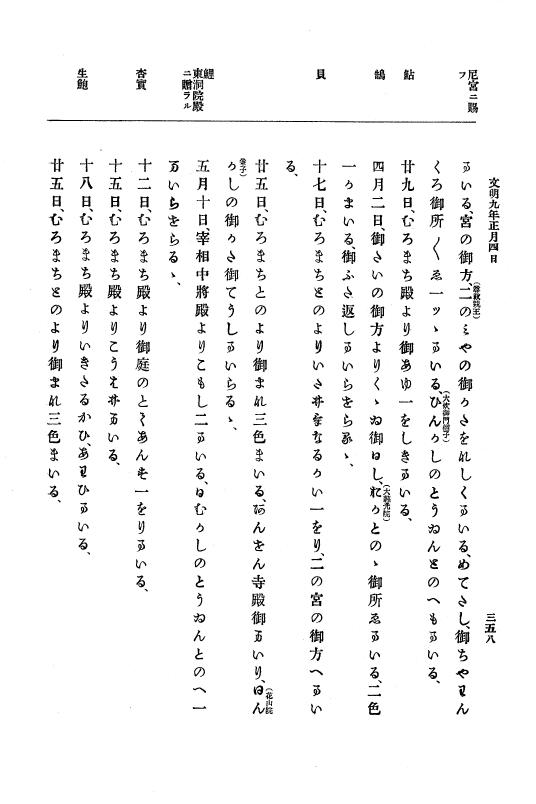 文明九年正月四日
三五八
尼宮ニ賜フ
鮎
鵠
貝
鯉東洞院殿ニ贈ラル
杏實
生鮑
まいる、宮の御方、二のみやの御かさをれしくまいる、めてさし、御ちやわん
(尊敦親王)
くろ御所〳〵ゑ一ツヽまいる、ひんかしのとうゐんとのへもまいる、
(大炊御門信子)
廿九日、むろまち殿より御あゆ一をしきまいる、
四月二日、御さいの御方よりくゝゐ御はし、れかとのゝ御所ゑまいる、二色
(大慈光院)
一かまいる、御ふさ返しまいらをらるゝ、
十七日、むろまちとのよりいさけをなるかい一をり、二の宮の御方へまい
る、
廿五日、むろまちとのより御まれ三色まいる、なんせん寺殿御まいり、はん
(花山院兼子)
かしの御かさ御てうしまいらるゝ、
五月十日、宰相中將殿よりこもし二まいる、はむかしのとうゐんとのへ一
まいらをらるゝ、
十二日、むろまち殿より御庭のとくあんす一をりまいる、
十五日、むろまち殿よりこうをけまいる、
十八日、むろまち殿よりいきさるかひ、あわひまいる、
廿五日、むろまちとのより御まれ三色まいる、